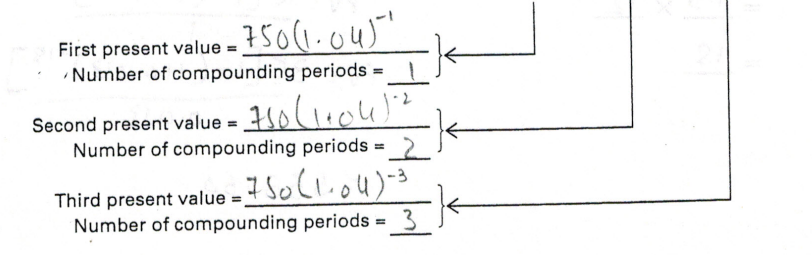 First present value = 750(1.04)⁻¹
Number of compounding periods = 1
Second present value = 750(1.04)⁻²
Number of compounding periods = 2
Third present value = 750(1.04)⁻³
Number of compounding periods = 3